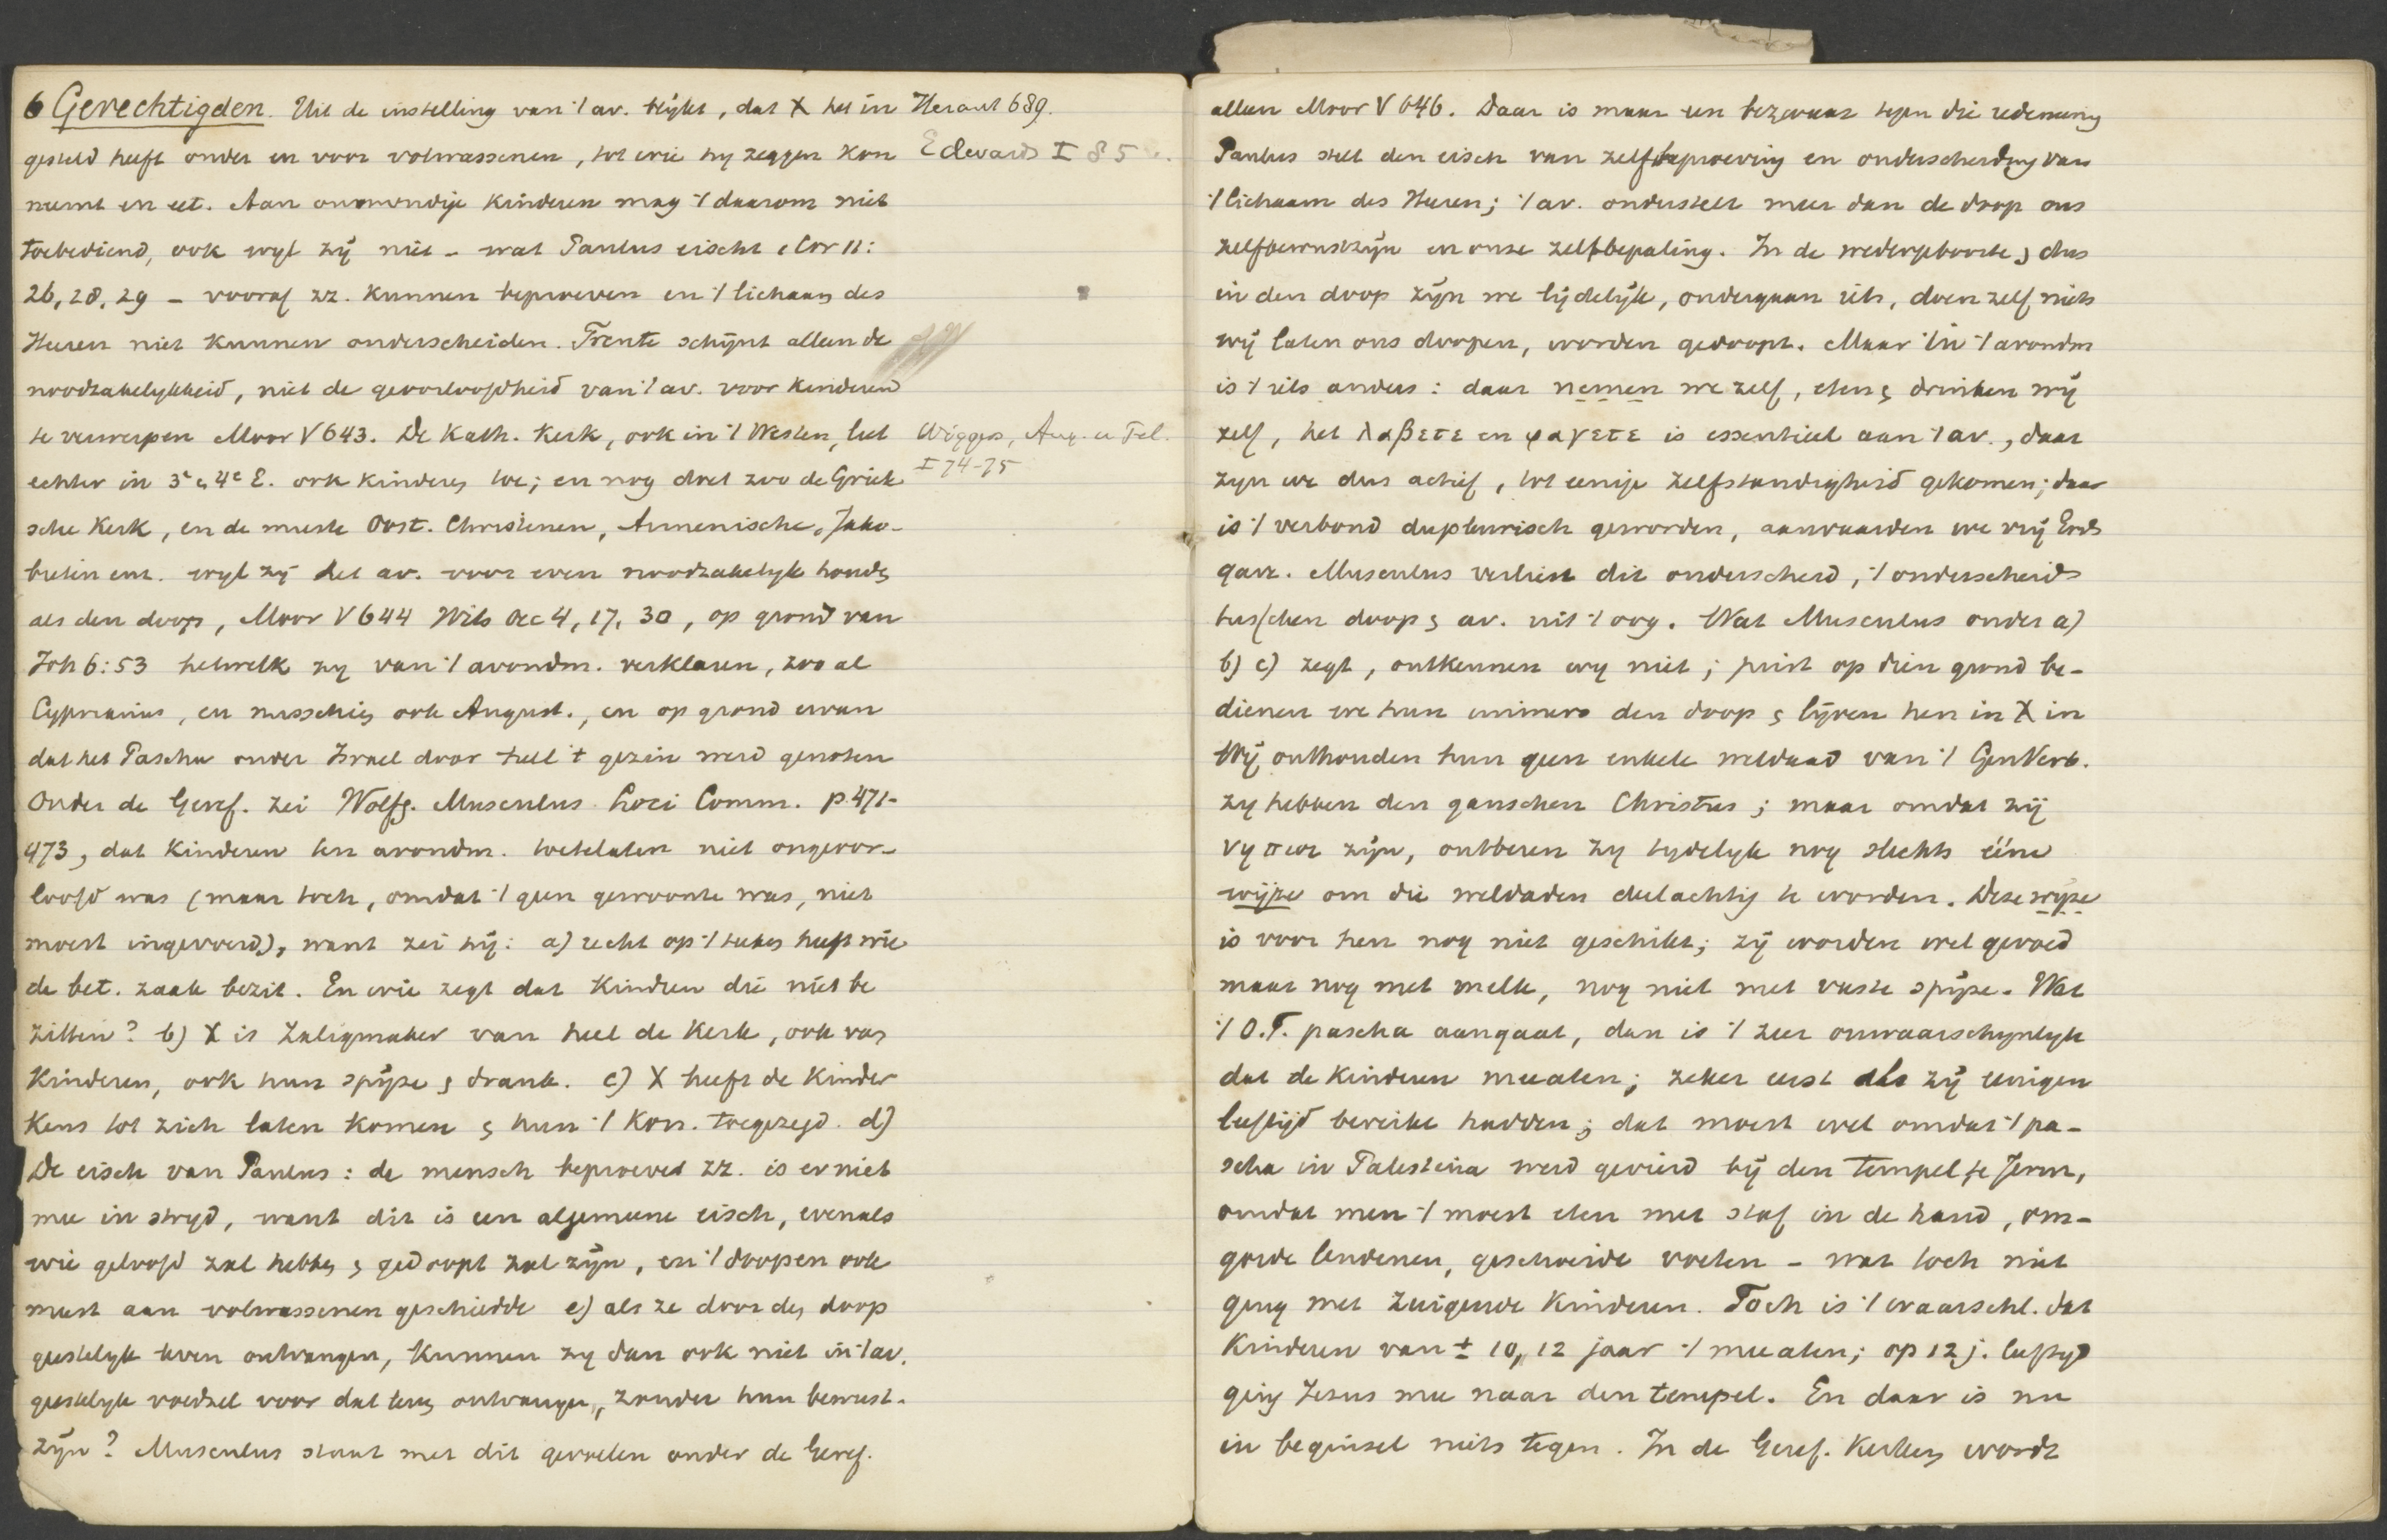 6 Gerechtigden. Uit de instelling van 't av. blijkt, dat X het in
gesteld heeft onder en voor volwassenen, tot wie hij zeggen kon
neemt en eet. Aan onmondige kinderen mag 't daarom niet
toebediend, ook wijl zij niet - wat Paulus eischt 1 Cor 11:
26, 28, 29 - vooraf zz. kunnen beproeven en 't lichaam des
Heeren niet kunnen onderscheiden. Trente schijnt alleen de
noodzakelijkheid, niet de geoorloofdheid van 't av. voor kinderen
te verwerpen Moor V 643. De Kath. Kerk, ook in 't Westen, liet
echter in 3e en 4e E. ook kinderen toe; en nog doet zoo de Griek
sche Kerk, en de meeste Oost. Christenen, Armenische, Jako-
bieten enz. wijl zij het av. voor even noodzakelijk houden
als den doop, Moor V 644 Wits Oec 4, 17, 30, op grond van
Joh 6:53 hetwelk zij van 't avondm. verklaren, zoo al
Cyprianus, en misschien ook August., en op grond ervan
dat het Pascha onder Israel door heel 't gezin werd genoten
Onder de Geref. zei Wolfg. Musculus Loci Comm. p. 471-
473, dat kinderen ten avondm. toetelaten niet ongeoor-
loofd was (maar toch, omdat 't geen gewoonte was, niet
moest ingevoerd), want zei hij: a) recht op 't teken heeft wie
de bet. zaak bezit. En wie zegt dat kinderen die niet be
zitten? b) X is Zaligmaker van heel de Kerk, ook van
Kinderen, ook hun spijze en drank. c) X heeft de kinder
kens tot zich laten komen en hun 't Kon. toegezegd. d)
De eisch van Paulus: de mensch beproeve zz. is er niet
mee in strijd, want dit is een algemeene eisch, evenals
wie geloofd zal hebben en gedoopt zal zijn, en 't doopen ook
meest aan volwassenen geschiedde e) als ze door den doop
geestelijk leven ontvangen, kunnen zij dan ook niet in 't av.
geestelijk voedsel voor dat leven ontvangen, zonder hun bewust-
zijn? Musculus staat met dit gevoelen onder de Geref.
Heraut 689.
Edwards I 85
Wiggers, Aug. u Pel.
I 74-75
alleen Moor V 646. Daar is maar een bezwaar tegen die redeneering
Paulus stelt den eisch van zelfbeproeving en onderscheiding van
't lichaam des Heeren; 't av. onderstelt meer dan de doop ons
zelfbewustzijn en onze zelfbepaling. In de wedergeboorte, dus
in den doop zijn we lijdelijk, ondergaan iets, doen zelf niets
wij laten ons doopen, worden gedoopt. Maar in 't avondm
is 't iets anders: daar nemen we zelf, eten en drinken wij
zelf, het λαβετε en φαγετε is essentieel aan 't av., daar
zijn we dus actief, tot eenige zelfstandigheid gekomen; daar
is 't verbond dupleurisch geworden, aanvaarden we vrij Gods
gave. Musculus verliest dit onderscheid, 't onderscheid
tusschen doop en av. uit 't oog. Wat Musculus onder a)
b) c) zegt, ontkennen wij niet; juist op dien grond be-
dienen we hun immers den doop en lijven hen in X in
Wij onthouden hun geen enkele weldaad van 't GenVerb.
zij hebben den ganschen Christus; maar omdat zij
νηπιοι zijn, ontberen zij tijdelijk nog slechts ééne
wijze om die weldaden deelachtig te worden. Deze wijze
is voor hen nog niet geschikt; zij worden wel gevoed
maar nog met melk, nog niet met vaste spijze. Wat
't O.T. pascha aangaat, dan is 't zeer onwaarschijnlijk
dat de kinderen meeaten; zeker eerst als zij eenigen
leeftijd bereikt hadden; dat moest wel omdat 't pa-
scha in Palestina werd gevierd bij den tempel te Jerun,
omdat men 't moest eten met staf in de hand, om-
gorde lendenen, geschoeide voeten - wat toch niet
ging met zuigende kinderen. Toch is 't waarschl. dat
Kinderen van ± 10, 12 jaar 't meeaten; op 12 j. leeftijd
ging Jezus mee naar den tempel. En daar is nu
in beginsel niets tegen. In de Geref. Kerken wordt